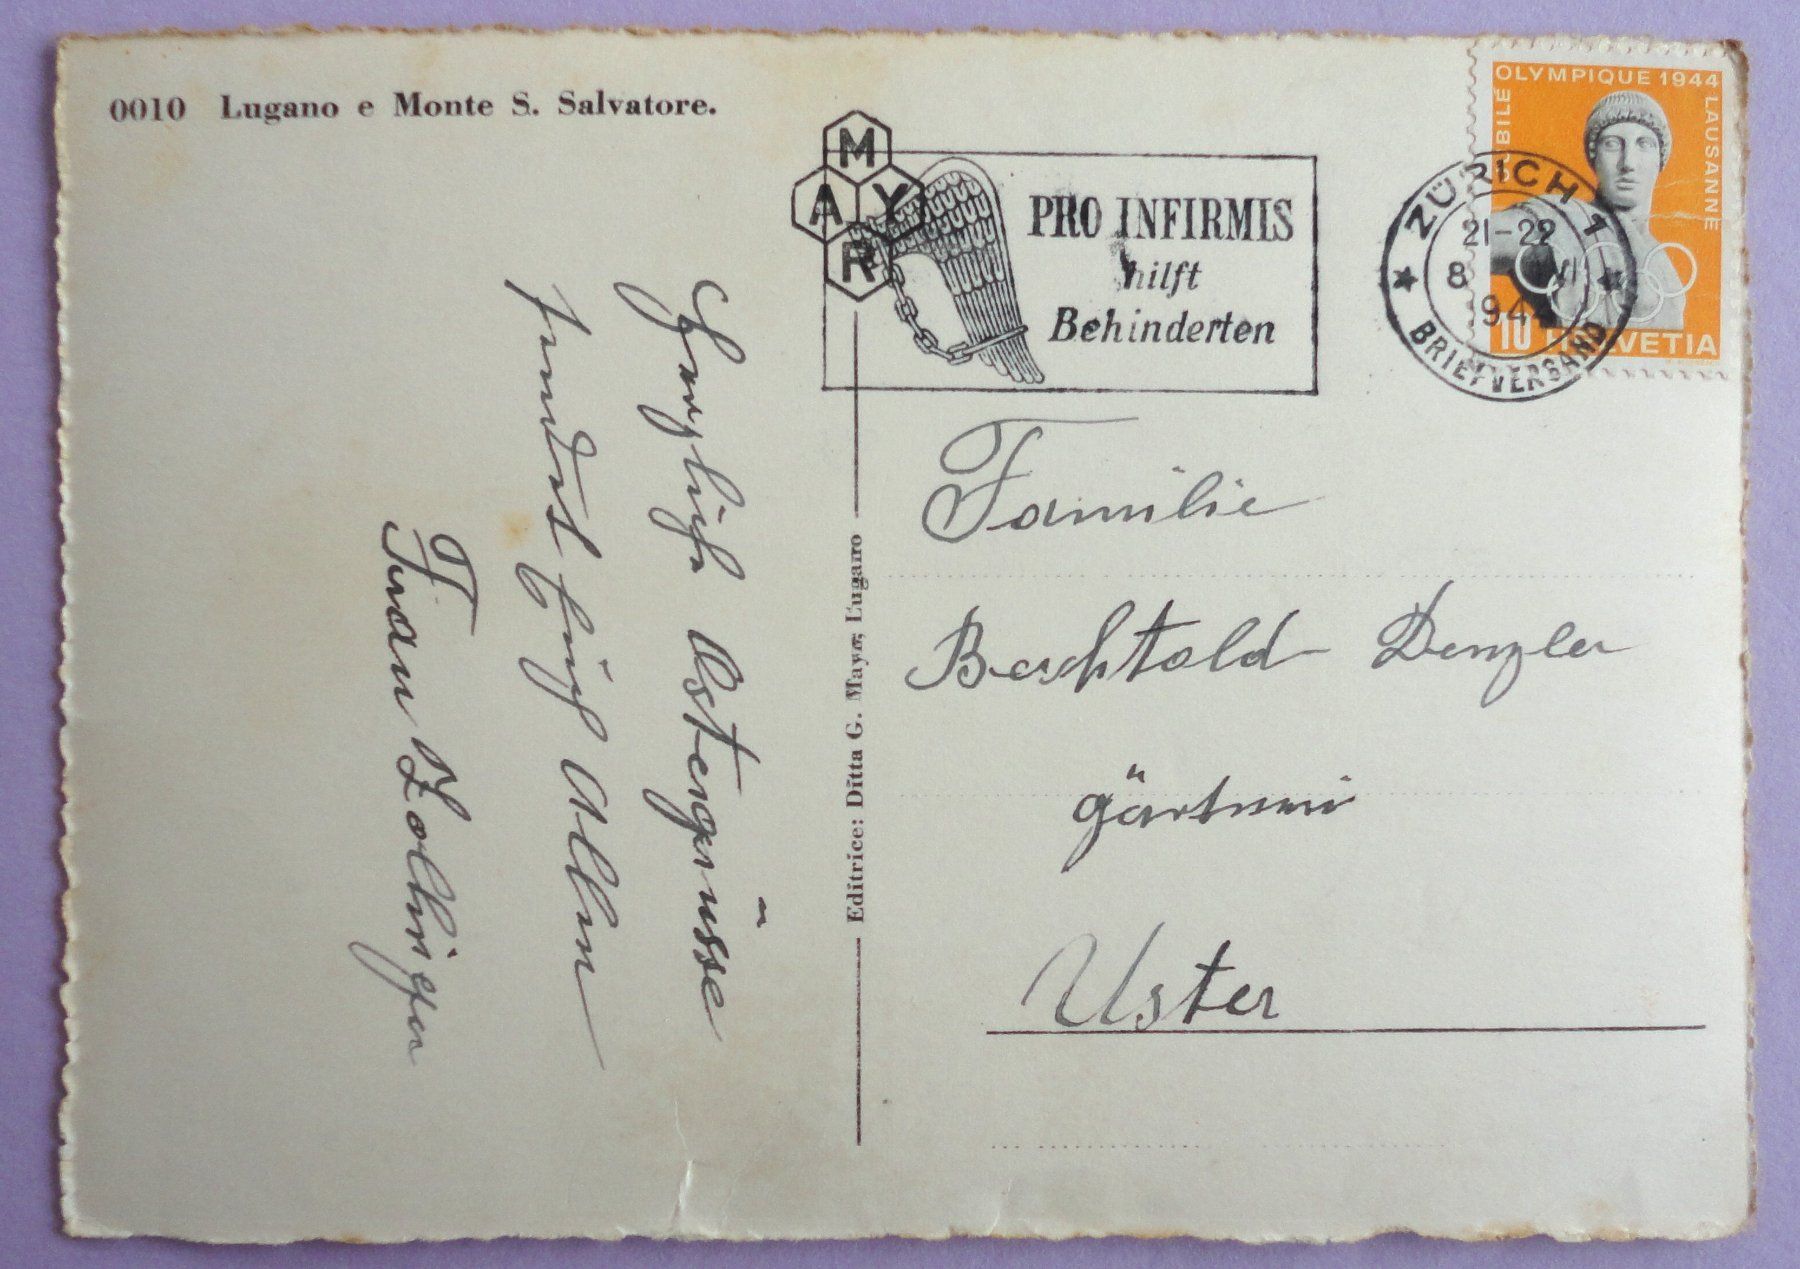 0010 Lugano e Monte S. Salvatore.
MAYR
PRO INFIRMIS
hilft
Behinderten
JUBILÉ OLYMPIQUE 1944 LAUSANNE
10 HELVETIA
ZÜRICH 1
21-22
8 VI
1944
BRIEFVERSAND
Herzlich Ostergrüsse
sendet Allen
Frau Zollinger
Editrice: Ditta G. Mayr, Lugano
Familie
Berchtold Denzler
Gärtnerei
Uster